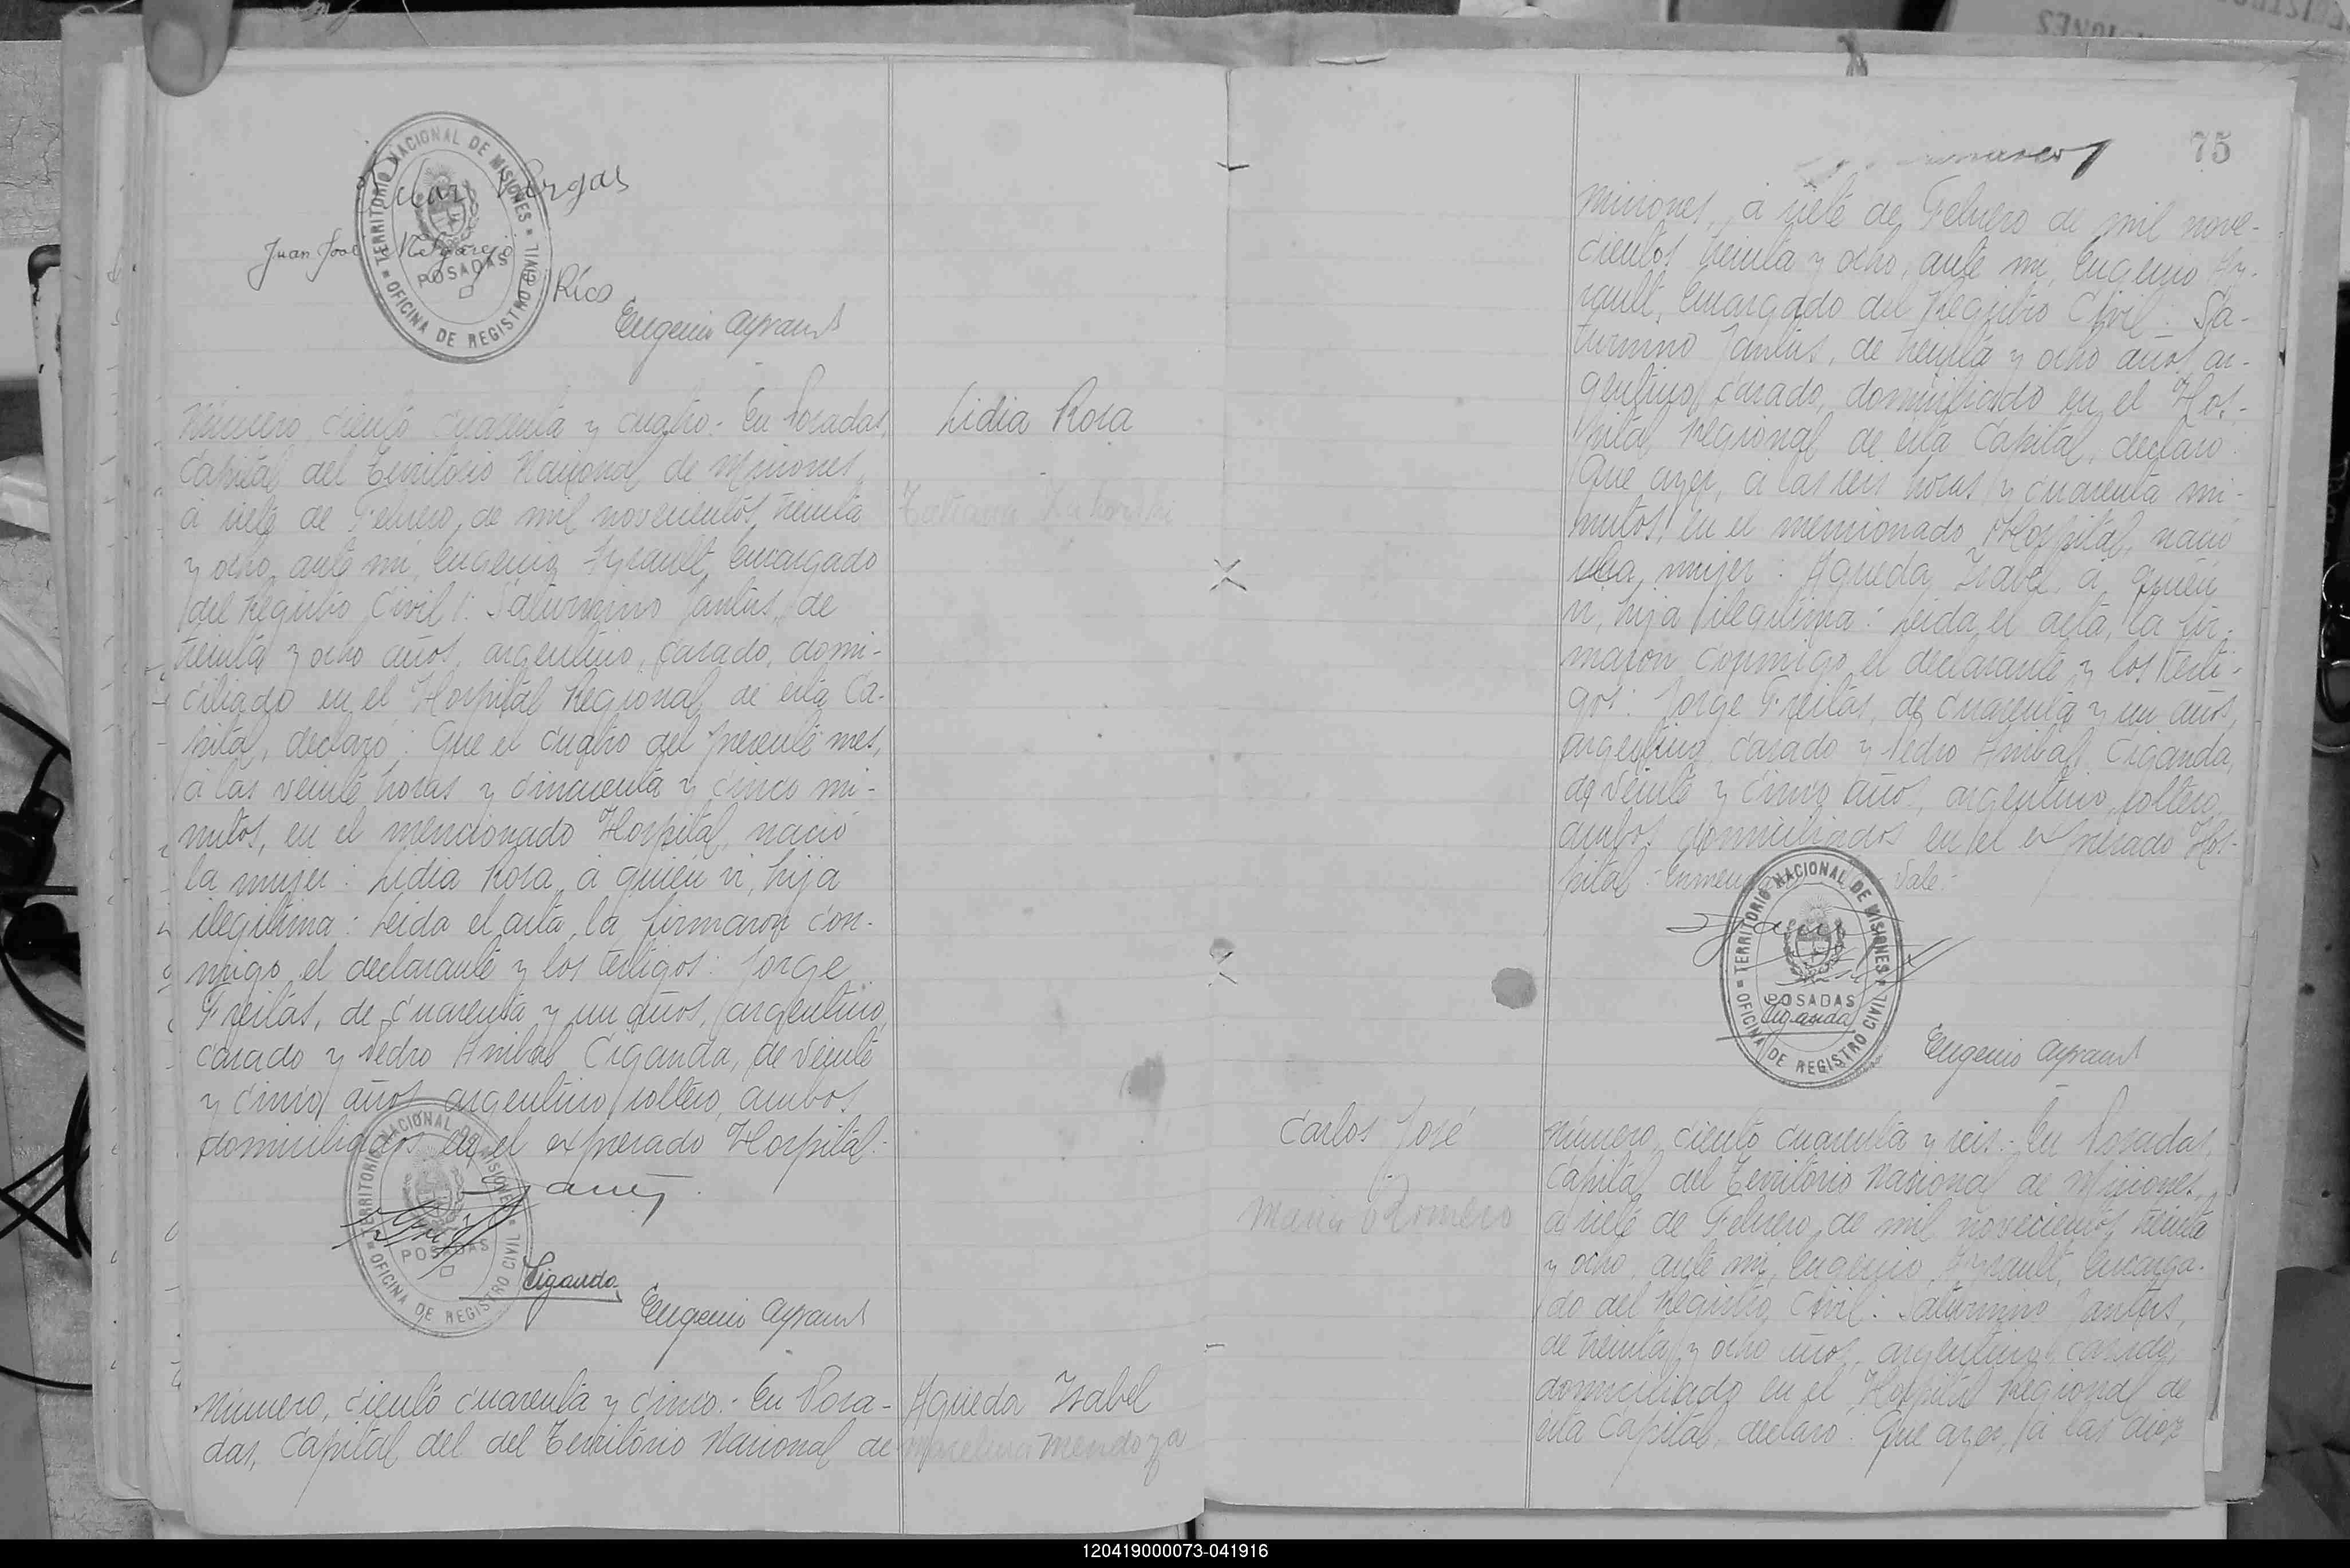 Juan Vargas
Juan José Melgarejo
Ríos
Eugenio Ayrault
TERRITORIO NACIONAL DE MISIONES
POSADAS
OFICINA DE REGISTRO CIVIL
Número ciento cuarenta y cuatro.- En Posadas,
Capital del Territorio Nacional de Misiones,
á siete de Febrero, de mil novecientos treinta
y ocho, ante mi, Eugenio Ayrault, Encargado
del Registro Civil: Saturnino Jantus, de
treinta y ocho años, argentino, casado, domi-
ciliado en el Hospital Regional de esta Ca-
pital, declaró: Que el cuatro del presente mes,
á las veinte horas y cincuenta y cinco mi-
nutos, en el mencionado Hospital, nació
la mujer: Lidia Rosa, á quién ví, hija
ilegítima: Leida el acta, la firmaron con-
migo, el declarante y los testigos: Jorge
Freitas, de cuarenta y un años, argentino,
casado y Pedro Anibal Ciganda, de veinte
y cinco años, argentino, soltero, ambos
domiciliados en el expresado Hospital.-
TERRITORIO NACIONAL DE MISIONES
POSADAS
OFICINA DE REGISTRO CIVIL
Ciganda
Eugenio Ayrault
Número, ciento cuarenta y cinco.- En Posa-
das, Capital del del Territorio Nacional de
Lidia Rosa
Agueda Isabel
Marcelina Mendoza
75
Misiones, á siete de Febrero de mil nove-
cientos treinta y ocho, ante mi, Eugenio Ay-
rault, Encargado del Registro Civil: Sa-
turnino Jantus, de treinta y ocho años, ar-
gentino, casado, domiciliado en el Hos-
pital Regional de esta Capital, declaró:
Que ayer, á las seis horas y cuarenta mi-
nutos, en el mencionado Hospital, nació
una, mujer: Agueda Isabel, á quién
ví, hija ilegítima: Leida el acta, la fir-
maron conmigo, el declarante y los testi-
gos: Jorge Freitas, de cuarenta y un años,
argentino, casado y Pedro Anibal Ciganda,
de veinte y cinco años, argentino, soltero,
ambos domiciliados en el expresado Hos-
pital.- Vale.-
TERRITORIO NACIONAL DE MISIONES
POSADAS
Ciganda
OFICINA DE REGISTRO CIVIL
Eugenio Ayrault
Carlos José
María Romero
Número, ciento cuarenta y seis.- En Posadas,
Capital del Territorio Nacional de Misiones,
á siete de Febrero, de mil novecientos treinta
y ocho, ante mi, Eugenio Ayrault, Encarga-
do del Registro Civil: Saturnino Jantus,
de treinta y ocho años, argentino, casado,
domiciliado en el Hospital Regional de
esta Capital, declaró: Que ayer, á las diez
120419000073-041916